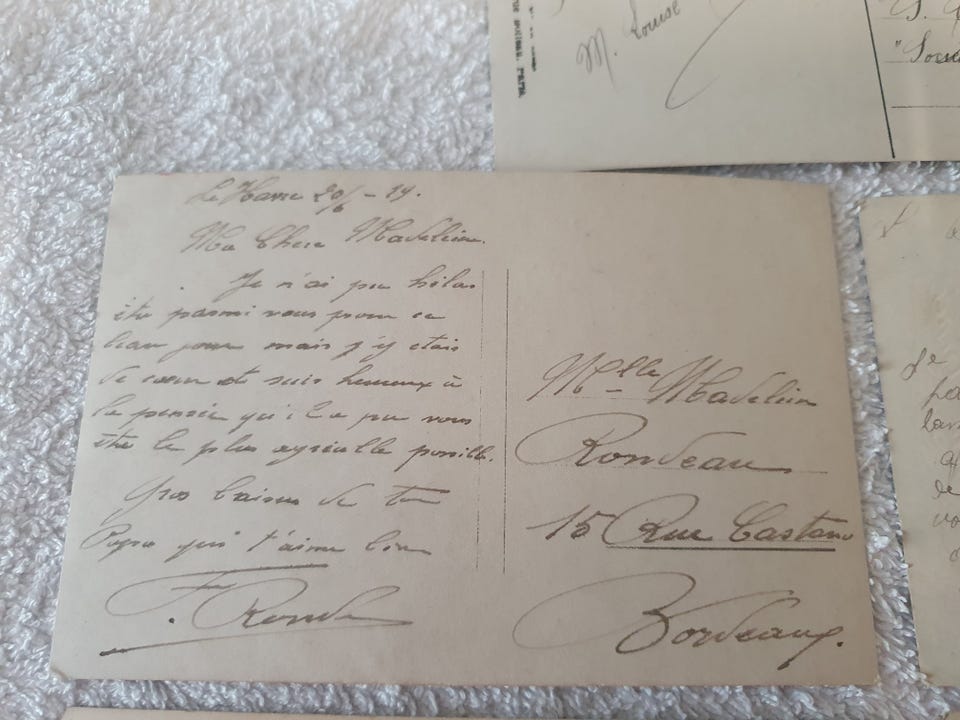 M. Louise
Le Havre 20/6 - 19.
Ma Chere Madeleine.
Je n'ai pu hélas
être parmi vous pour ce
beau jour mais j'y étais
de cœur et suis heureux à
la pensée qu'il a pu vous
être le plus agréable possible.
Gros baisers de ton
Papa qui t'aime bien
F. Rondeau
Melle Madeleine
Rondeau
15 Rue Castano
Bordeaux.